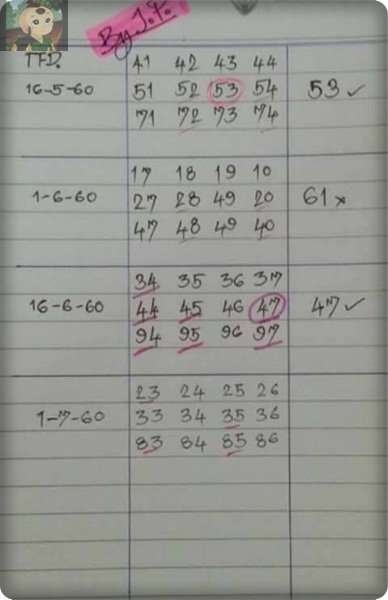 By J.P.
TFD.
41 42 43 44
16-5-60 51 52 53 54 53 ✓
71 72 73 74
17 18 19 10
1-6-60 27 28 49 20 61 ×
47 48 49 40
34 35 36 37
16-6-60 44 45 46 47 47 ✓
94 95 96 97
23 24 25 26
1-7-60 33 34 35 36
83 84 85 86